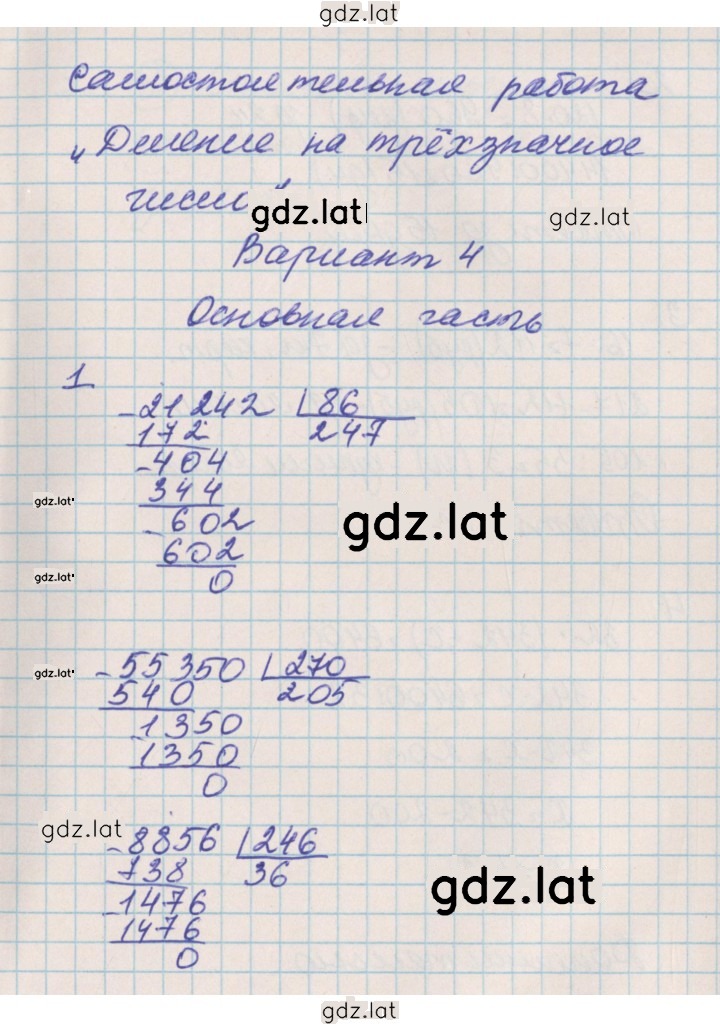 gdz.lat
Самостоятельная работа
„Деление на трёхзначное
число"
gdz.lat
gdz.lat
Вариант 4
Основная часть
1
- 21242 | 86
172 247
- 404
344
- 602
602
0
gdz.lat
gdz.lat
gdz.lat
- 55350 | 270
540 205
1350
1350
0
gdz.lat
gdz.lat
- 8856 | 246
738 36
- 1476
1476
0
gdz.lat
gdz.lat